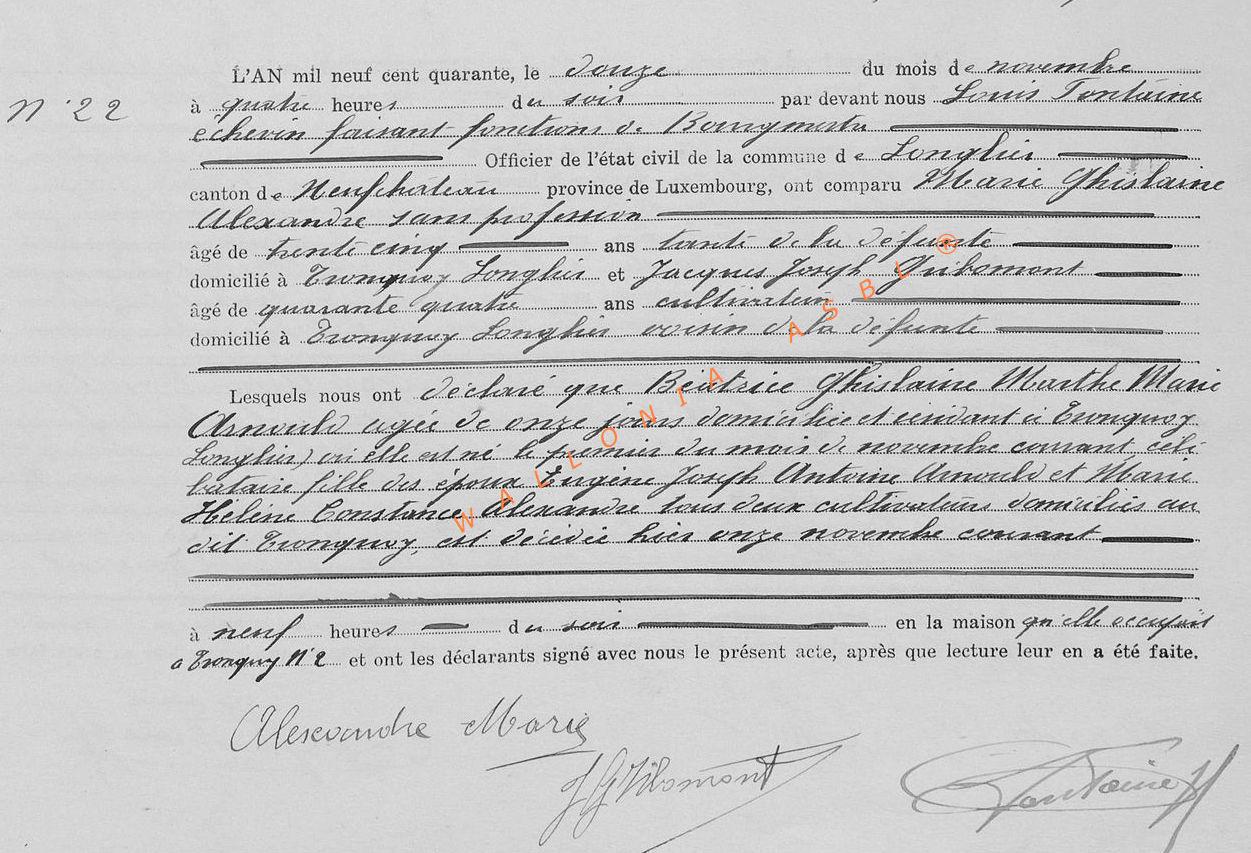 L'AN mil neuf cent quarante, le douze du mois de novembre
N° 22
à quatre heures du soir par devant nous Louis Fontaine
échevin faisant fonctions de Bourgmestre
Officier de l'état civil de la commune de Longlier
canton de Neufchateau province de Luxembourg, ont comparu Marie Ghislaine
Alexandre sans profession
âgé de trente cinq ans tante de la défunte
domicilié à Tronquoy Longlier et Jacques Joseph Gribomont
âgé de quarante quatre ans cultivateur
domicilié à Tronquoy Longlier voisin de la défunte
Lesquels nous ont déclaré que Béatrice Ghislaine Marthe Marie
Arnould agée de onze jours domiciliée et résidant à Tronquoy
Longlier) où elle est né le premier du mois de novembre courant céli
bataire fille des époux Eugène Joseph Antoine Arnould et Marie
Hélène Constance Alexandre tous deux cultivateurs domiciliés au
dit Tronquoy, est décédée hier onze novembre courant
à neuf heures du soir en la maison qu'elle occupait
à Tronquoy N° 2 et ont les déclarants signé avec nous le présent acte, après que lecture leur en a été faite.
Alexandre Marie
J Gribomont
Fontaine
WALLONIA ASBL ®